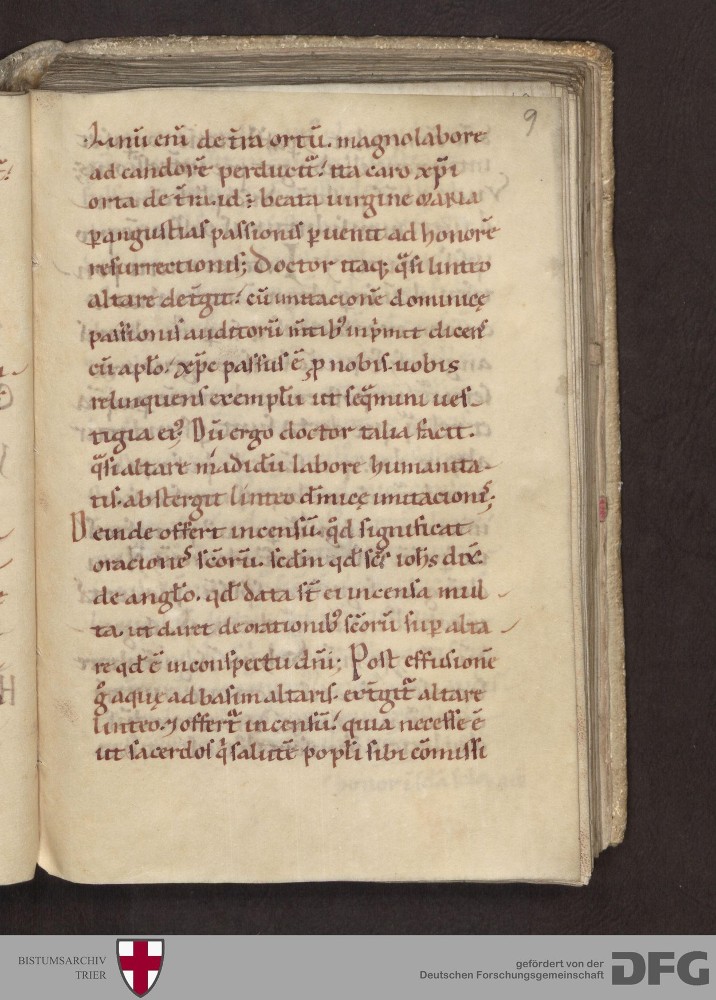 9
Linū enī de t̄ra ortū. magno labore
ad candorē perducit᷑. ita caro xp̄i
orta de t̄ra. id ÷ beata uirgine MARIA
ꝑ angustias passionis ꝑuenit ad honorē
resurrectionis; Doctor itaq; q̄si linteo
altare det̄git. cū imitacionē dominicę
passionis auditorū m̄tib᷒ inp̄mit dicens
cū apl̄o. xp̄c passus ē ꝓ nobis. uobis
relinquens exemplū ut seq̄mini ues-
tigia ei᷒. Dū ergo doctor talia facit.
q̄si altare madidū labore humanita-
tis. abstergit linteo dn̄icę imitacionis;
Deinde offert incensū. qd̄ significat
orationes sc̄orū. scdm̄ qd̄ sc̄s ioh̄s dix̄.
de angl̄o. qd̄ data st̄ ei incensa mul
ta. ut daret de orationib᷒ sc̄orū suꝑ alta
re qd̄ ē in conspectu dn̄i; Post effusionē
g̊ aquę ad basim altaris. ext̄git᷑ altare
linteo. ⁊ offert᷑ incensū. quia necesse ē
ut sacerdos q̇ salutē popl̄i sibi cōmissi
BISTUMSARCHIV
TRIER
gefördert von der
Deutschen Forschungsgemeinschaft
DFG